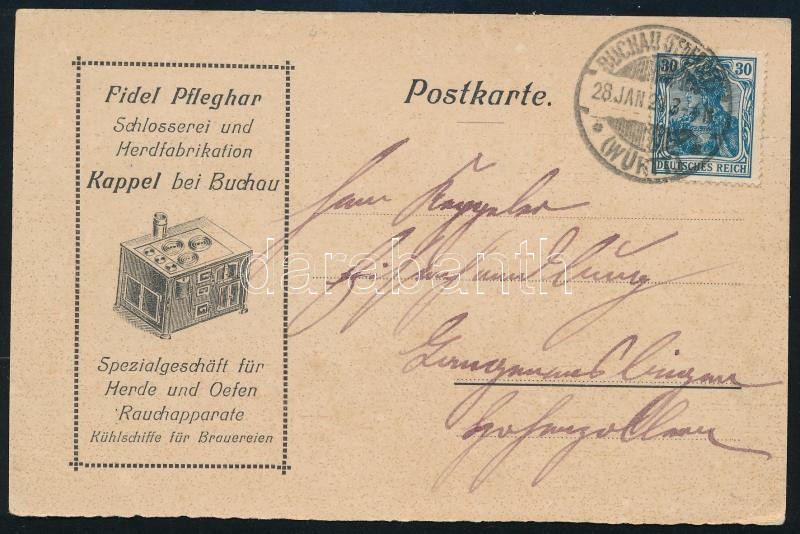 Fidel Pfleghar
Schlosserei und
Herdfabrikation
Kappel bei Buchau
Spezialgeschäft für
Herde und Oefen
Rauchapparate
Kühlschiffe für Brauereien
Postkarte.
BUCHAU
28 JAN
30 30
DEUTSCHES REICH
Herrn Keppeler
handlung
Langenenslingen
Hohenzollern
darabanth